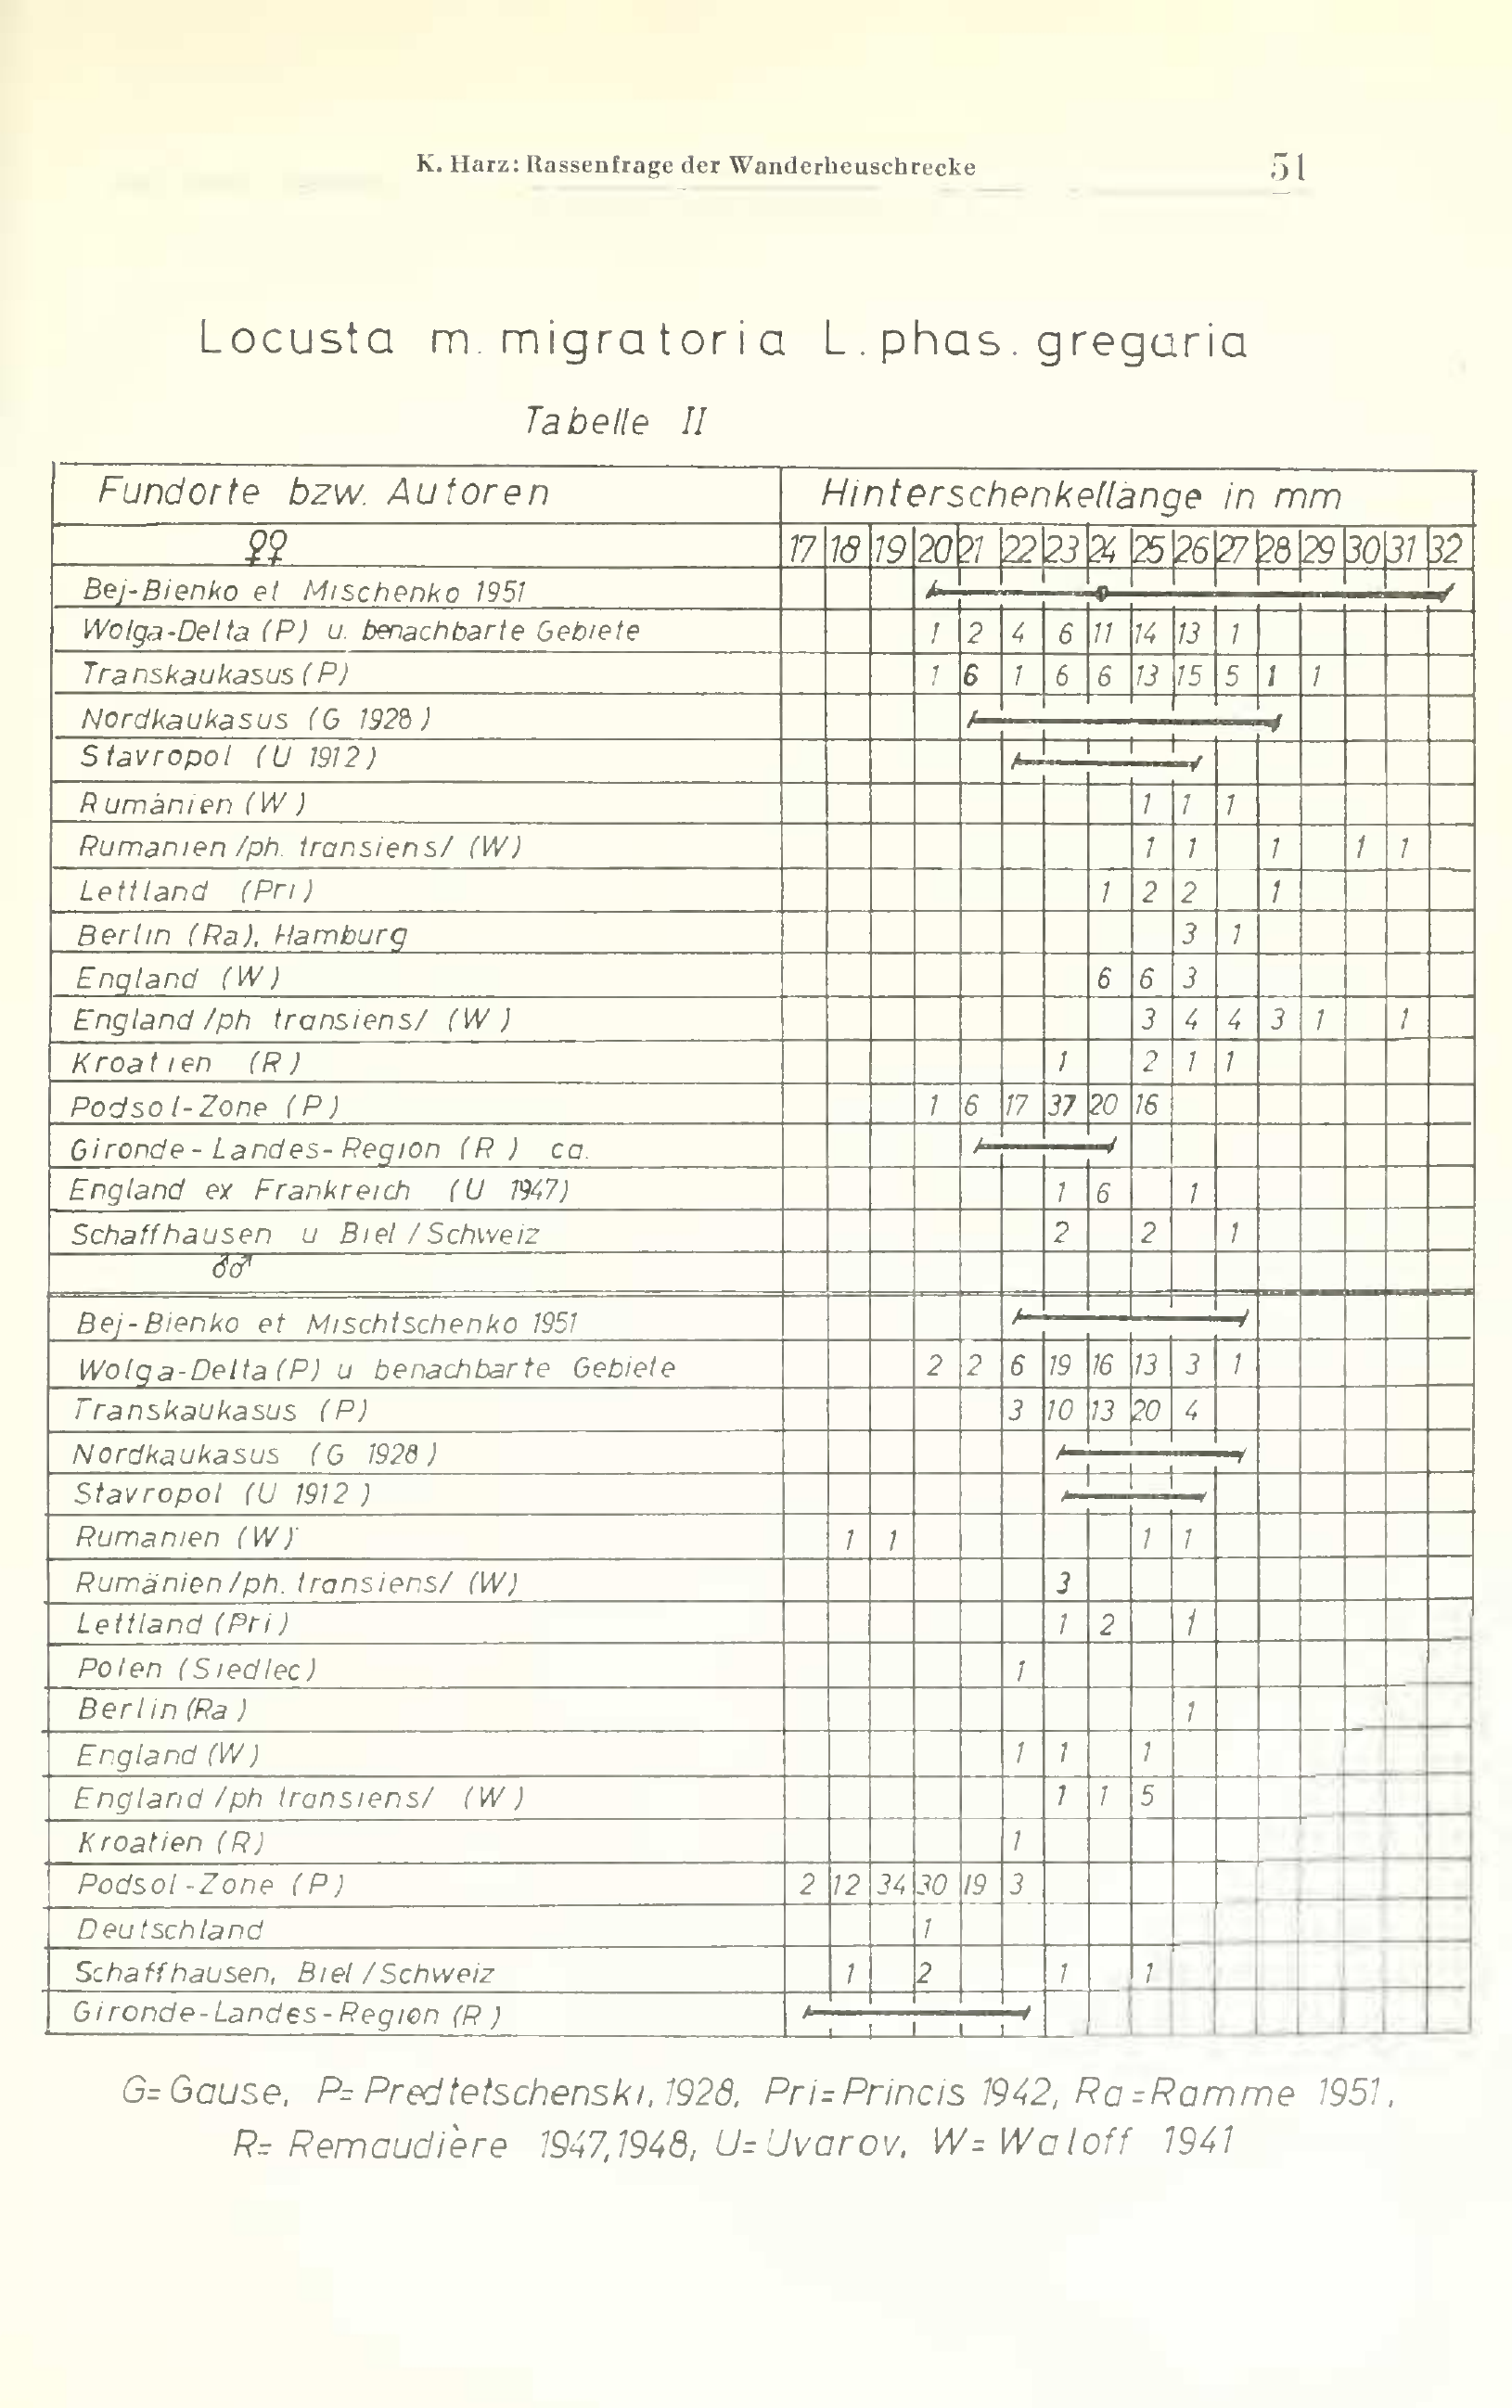 K. Harz: Rassenfrage der Wanderheuschrecke 51
Locusta m. migratoria L. phas. gregaria
Tabelle II
Fundorte bzw. Autoren Hinterschenkellänge in mm
♀♀ 17 18 19 20 21 22 23 24 25 26 27 28 29 30 31 32
Bej-Bienko et Mischenko 1951
Wolga-Delta (P) u. benachbarte Gebiete 1 2 4 6 11 14 13 1
Transkaukasus (P) 1 6 1 6 6 13 15 5 1 1
Nordkaukasus (G 1928)
Stavropol (U 1912)
Rumänien (W) 1 1 1
Rumanien /ph. transiens/ (W) 1 1 1 1 1
Lettland (Pri) 1 2 2 1
Berlin (Ra), Hamburg 3 1
England (W) 6 6 3
England /ph transiens/ (W) 3 4 4 3 1 1
Kroatien (R) 1 2 1 1
Podsol-Zone (P) 1 6 17 37 20 16
Gironde-Landes-Region (R) ca.
England ex Frankreich (U 1947) 1 6 1
Schaffhausen u Biel / Schweiz 2 2 1
♂♂
Bej-Bienko et Mischtschenko 1951
Wolga-Delta (P) u benachbarte Gebiete 2 2 6 19 16 13 3 1
Transkaukasus (P) 3 10 13 20 4
Nordkaukasus (G 1928)
Stavropol (U 1912)
Rumanien (W) 1 1 1 1
Rumänien /ph. transiens/ (W) 3
Lettland (Pri) 1 2 1
Polen (Siedlec) 1
Berlin (Ra) 1
England (W) 1 1 1
England /ph transiens/ (W) 1 1 5
Kroatien (R) 1
Podsol-Zone (P) 2 12 34 30 19 3
Deutschland 1
Schaffhausen, Biel / Schweiz 1 2 1 1
Gironde-Landes-Region (R)
G= Gause, P= Predtetschenski, 1928, Pri= Princis 1942, Ra= Ramme 1951,
R= Remaudière 1947, 1948, U= Uvarov, W= Waloff 1941